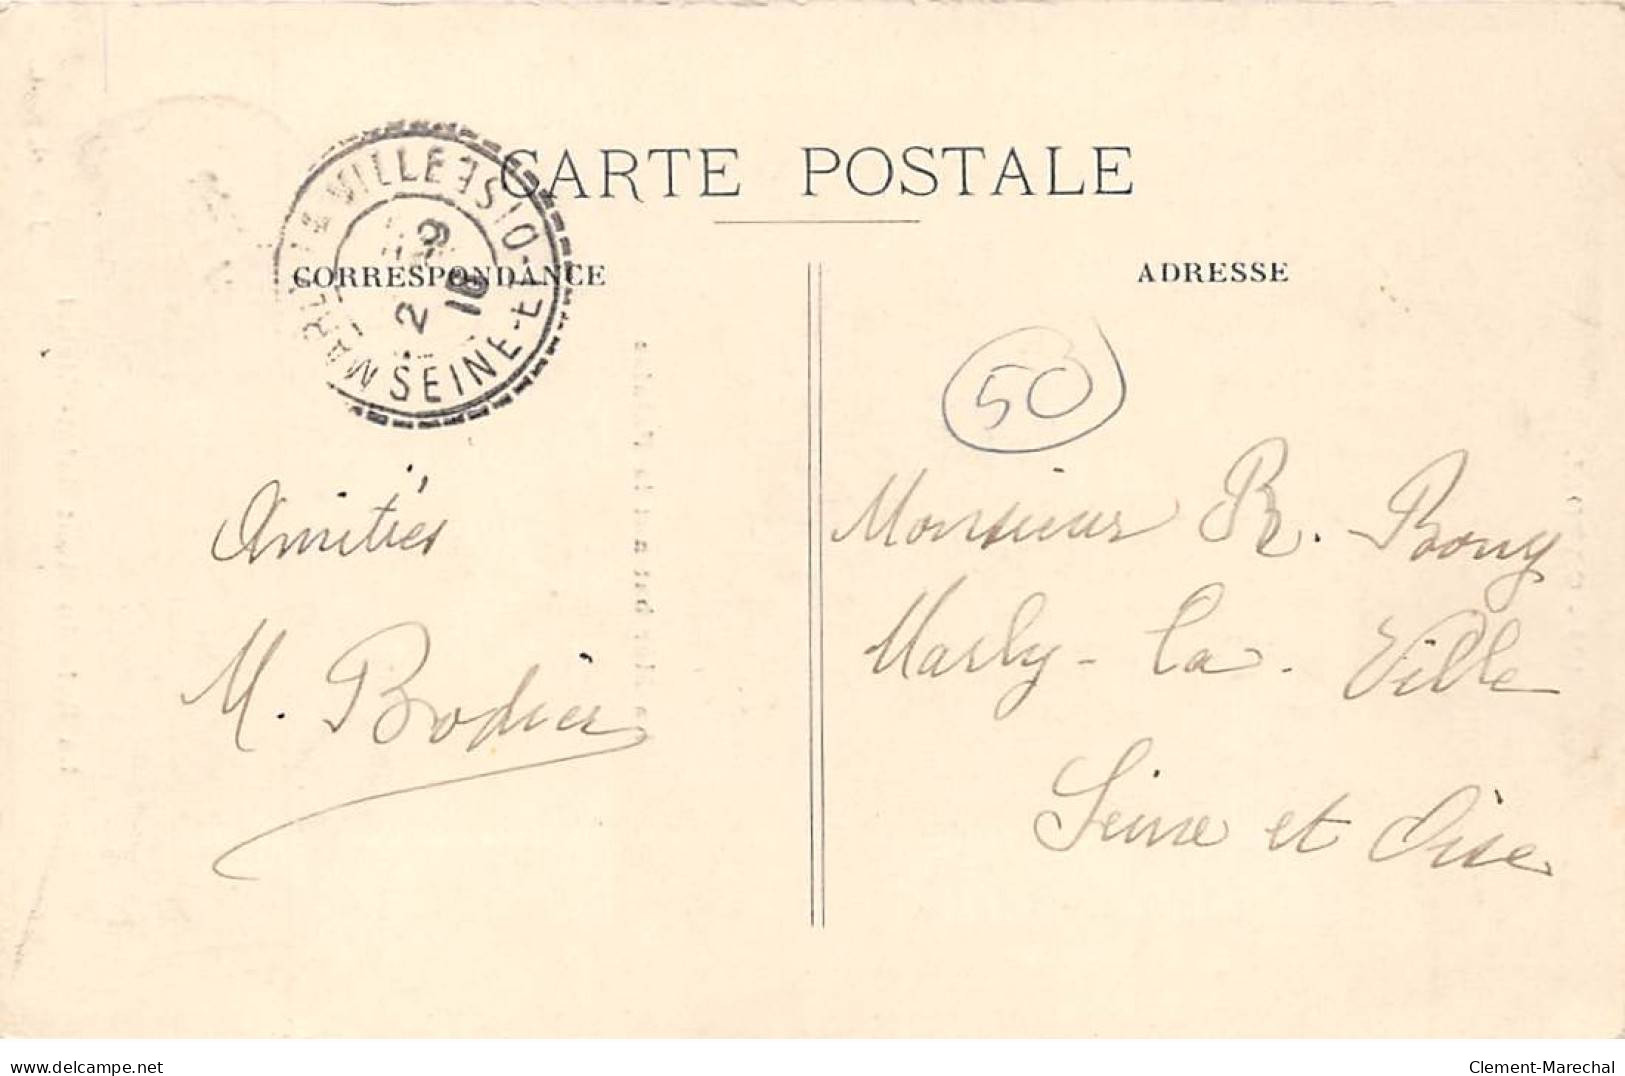 CARTE POSTALE
CORRESPONDANCE
ADRESSE
MARLY-LA-VILLE
SEINE-ET-OISE
50
Amitiés
M. Bodier
Monsieur R. Bony
Marly-la-Ville
Seine et Oise
delcampe.net
Clement-Marechal